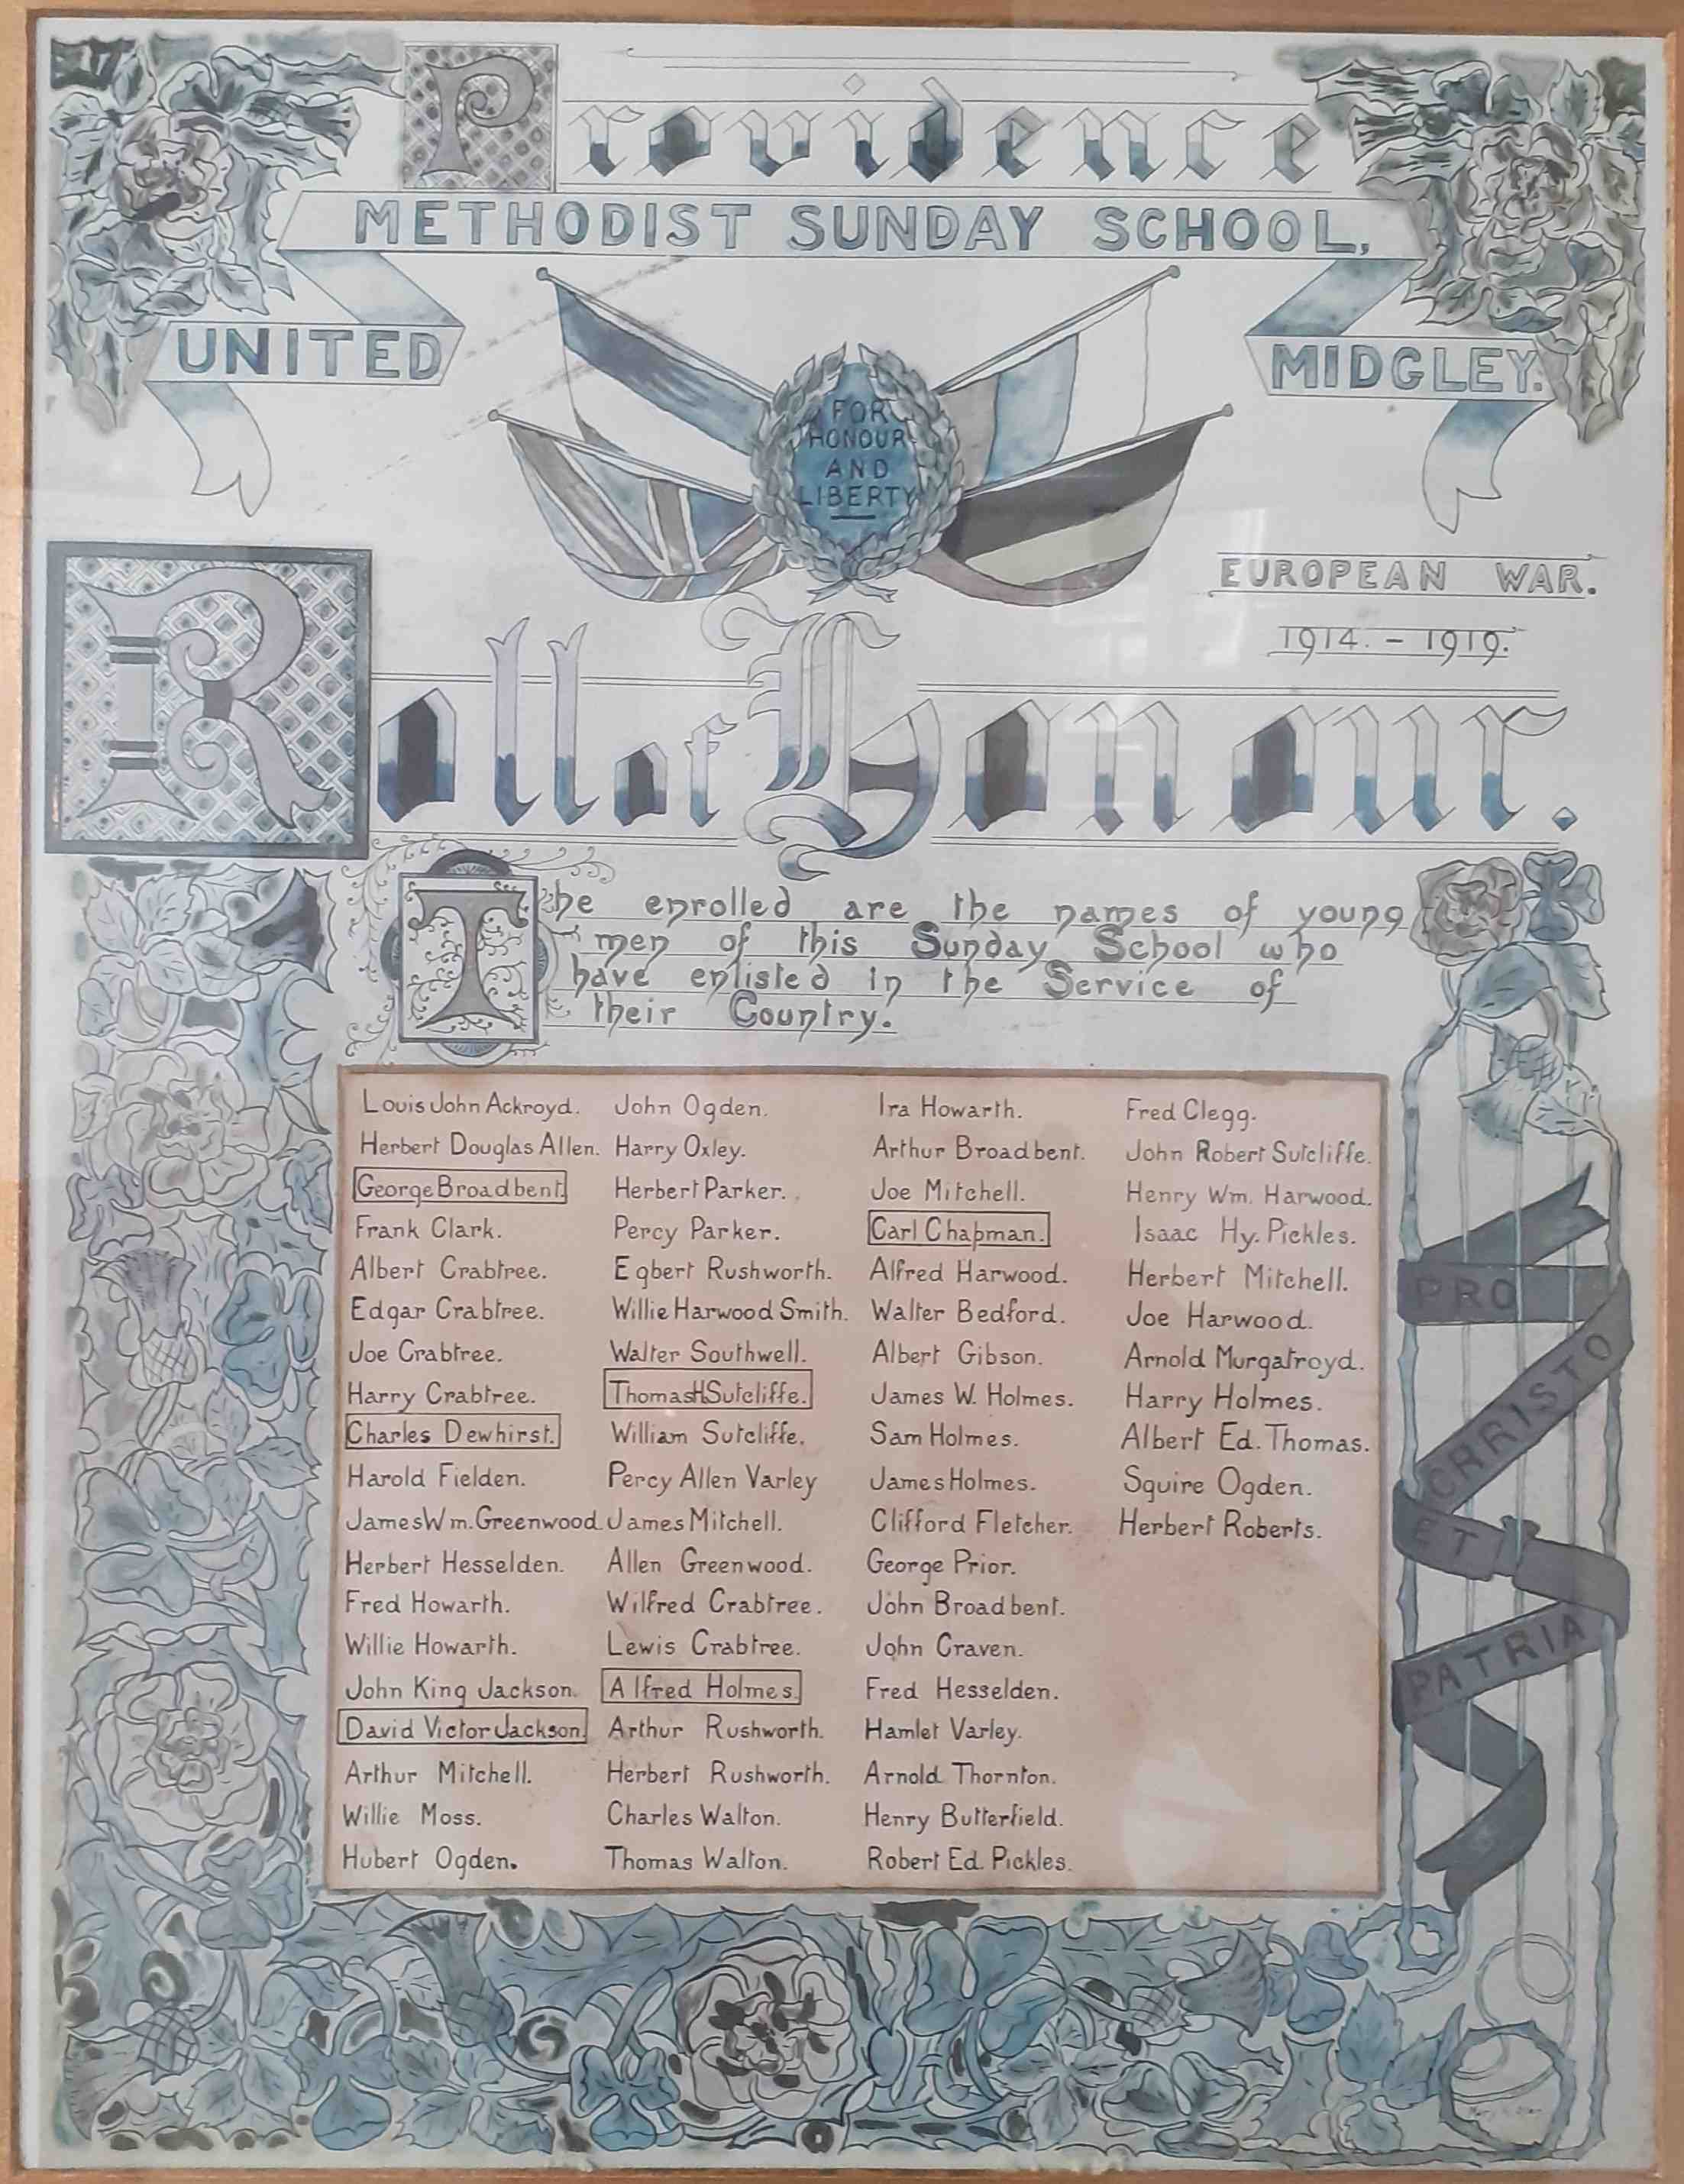 Providence
METHODIST SUNDAY SCHOOL,
UNITED
MIDGLEY.
FOR
HONOUR
AND
LIBERTY
EUROPEAN WAR.
1914. - 1919.
Roll of Honour.
The enrolled are the names of young
men of this Sunday School who
have enlisted in the Service of
their Country.
Louis John Ackroyd.
Herbert Douglas Allen.
George Broadbent.
Frank Clark.
Albert Crabtree.
Edgar Crabtree.
Joe Crabtree.
Harry Crabtree.
Charles Dewhirst.
Harold Fielden.
James Wm. Greenwood.
Herbert Hesselden.
Fred Howarth.
Willie Howarth.
John King Jackson.
David Victor Jackson.
Arthur Mitchell.
Willie Moss.
Hubert Ogden.
John Ogden.
Harry Oxley.
Herbert Parker.
Percy Parker.
Egbert Rushworth.
Willie Harwood Smith.
Walter Southwell.
Thomas H Sutcliffe.
William Sutcliffe.
Percy Allen Varley
James Mitchell.
Allen Greenwood.
Wilfred Crabtree.
Lewis Crabtree.
Alfred Holmes.
Arthur Rushworth.
Herbert Rushworth.
Charles Walton.
Thomas Walton.
Ira Howarth.
Arthur Broadbent.
Joe Mitchell.
Carl Chapman.
Alfred Harwood.
Walter Bedford.
Albert Gibson.
James W. Holmes.
Sam Holmes.
James Holmes.
Clifford Fletcher.
George Prior.
John Broadbent.
John Craven.
Fred Hesselden.
Hamlet Varley.
Arnold Thornton.
Henry Butterfield.
Robert Ed. Pickles.
Fred Clegg.
John Robert Sutcliffe.
Henry Wm. Harwood.
Isaac Hy. Pickles.
Herbert Mitchell.
Joe Harwood.
Arnold Murgatroyd.
Harry Holmes.
Albert Ed. Thomas.
Squire Ogden.
Herbert Roberts.
PRO
CRRISTO
ET
PATRIA